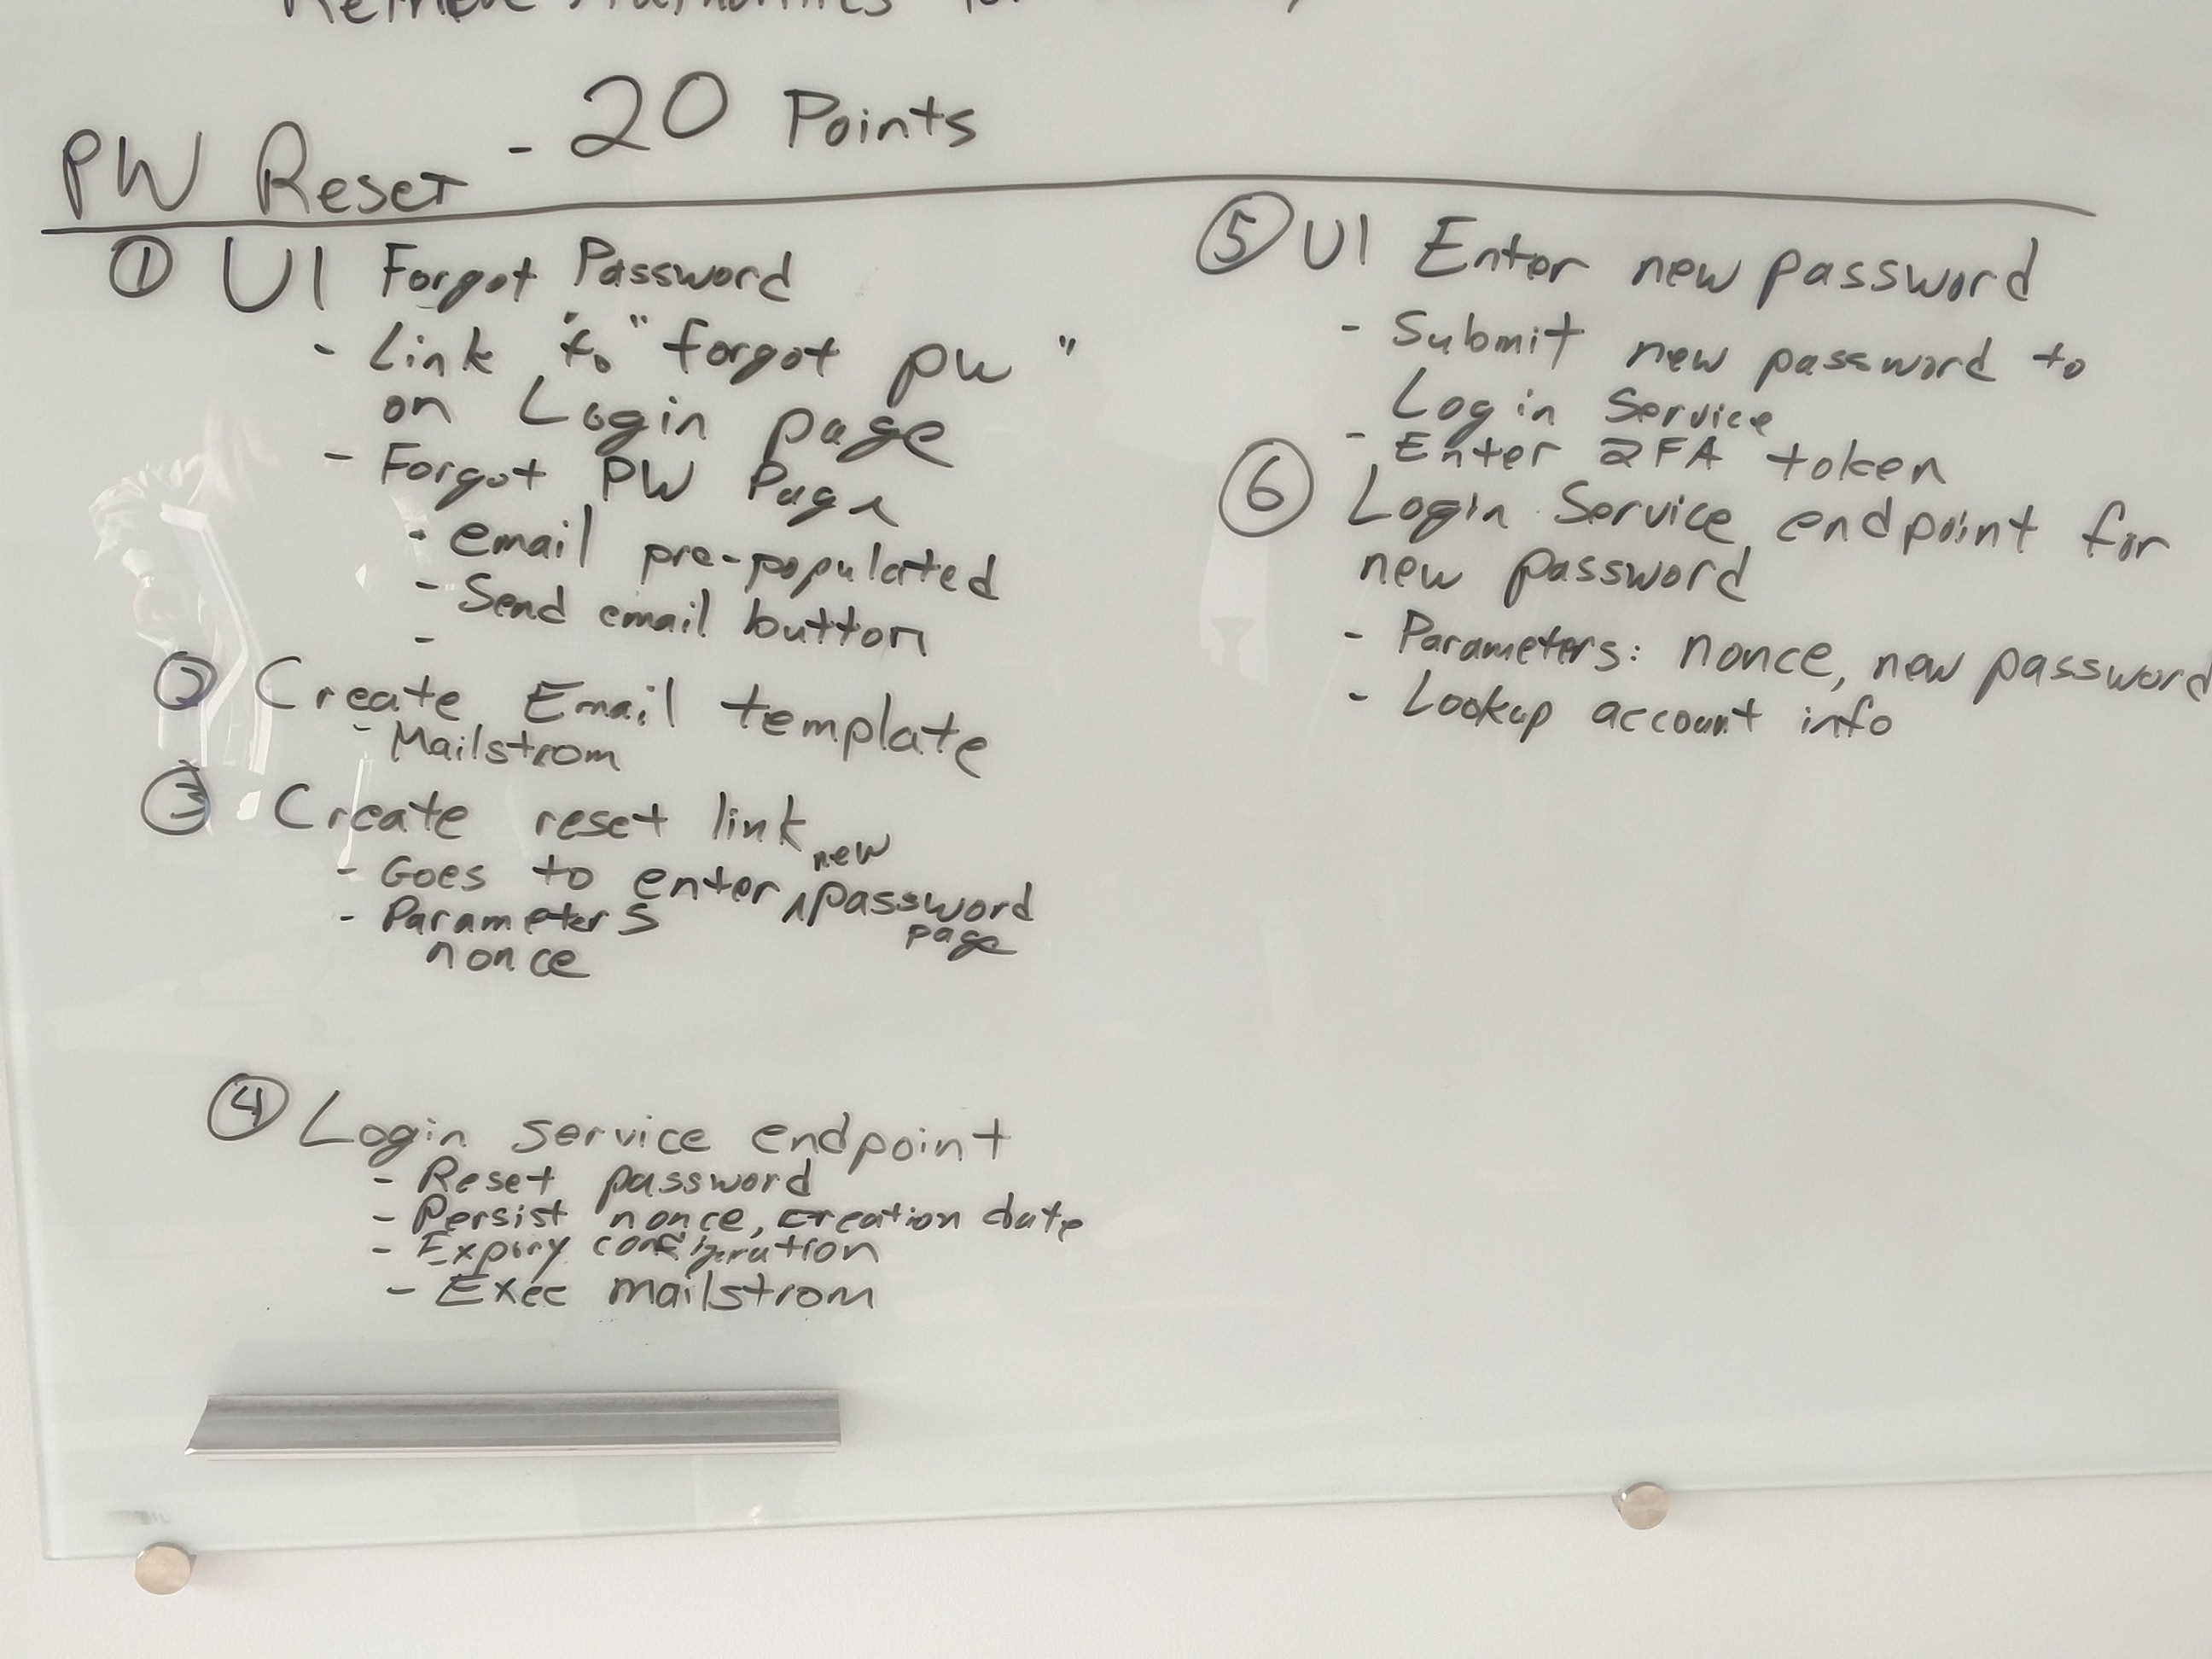 PW Reset - 20 Points
① UI Forgot Password
- Link to "forgot pw"
on Login page
- Forgot PW Page
- email pre-populated
- Send email button
-
② Create Email template
- Mailstrom
③ Create reset link
- Goes to enter new password
page
- Parameters
nonce
④ Login service endpoint
- Reset password
- Persist nonce, creation date
- Expiry configuration
- Exec mailstrom
⑤ UI Enter new password
- Submit new password to
Login Service
- Enter 2FA token
⑥ Login Service endpoint for
new password
- Parameters: nonce, new password
- Lookup account info